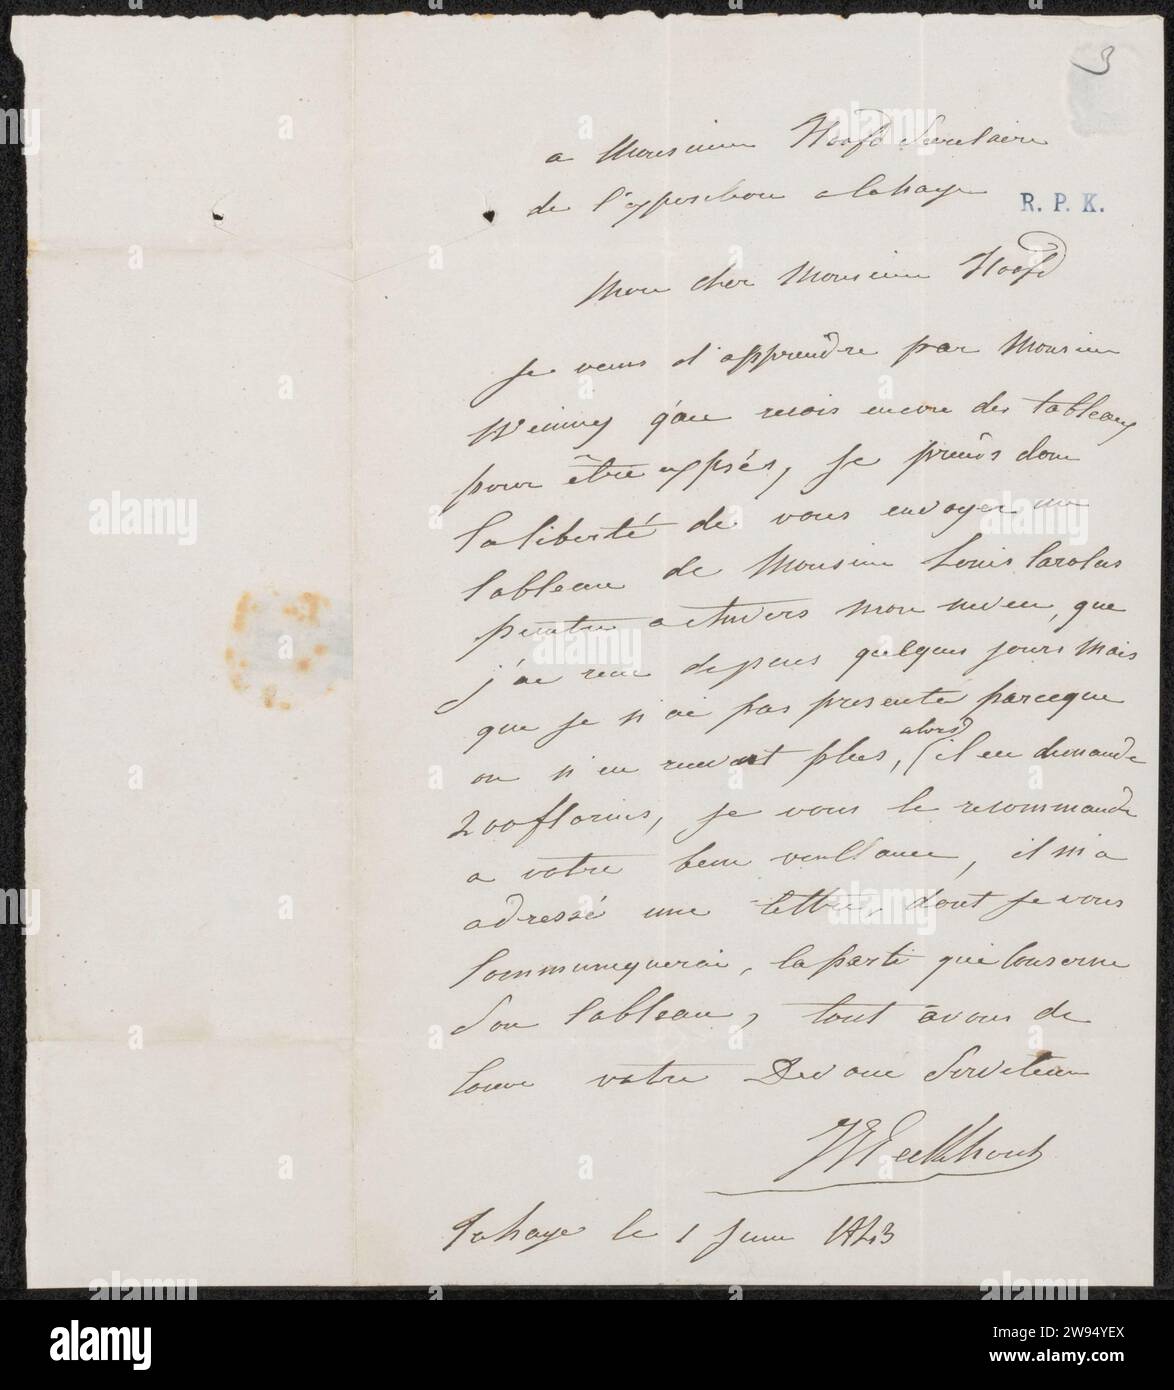 3
a Monsieur Hoofd Secretaire
de l'exposition a lahaye
R. P. K.
Mon cher Monsieur Hoofd
Je viens d'apprendre par Monsieur
qu'on recois encore des tableaux
pour être exposés, Je prends donc
la liberté de vous envoyer un
tableau de Monsieur Louis Carolus
peintre a Anvers mon neveu, que
j'ai recu depuis quelques jours mais
que je n'ai pas presenté parceque
on n'en recevoit plus, alors il en demande
200 florins, je vous le recommande
a votre bien veillance, il m'a
adressé une lettre, dont je vous
communiquerai, la partie qui conserne
son tableau, tout a vous de
coeur votre Devoue Serviteur
JJ Eeckhout
Lahaye le 1 Juin 1843
alamy
Image ID: 2W94YEX
www.alamy.com